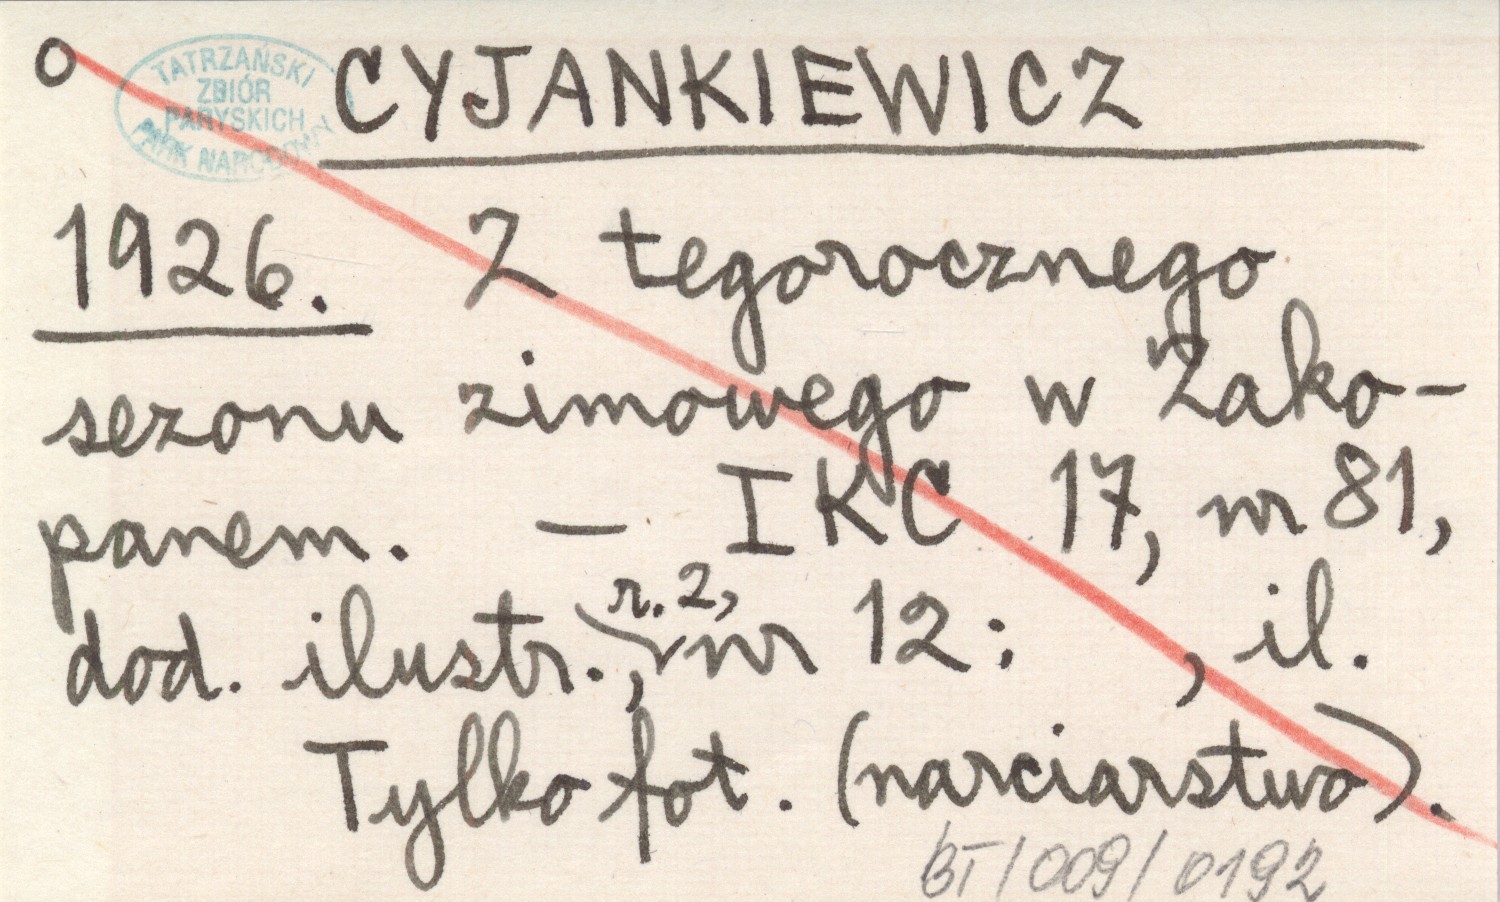 o
TATRZAŃSKI
ZBIÓR
PARYSKICH
PARK NARODOWY
CYJANKIEWICZ
1926. Z tegorocznego
sezonu zimowego w Zako-
panem. — IKC 17, nr 81,
dod. ilustr., r. 2, nr 12: , il.
Tylko fot. (narciarstwo).
BT/009/0192